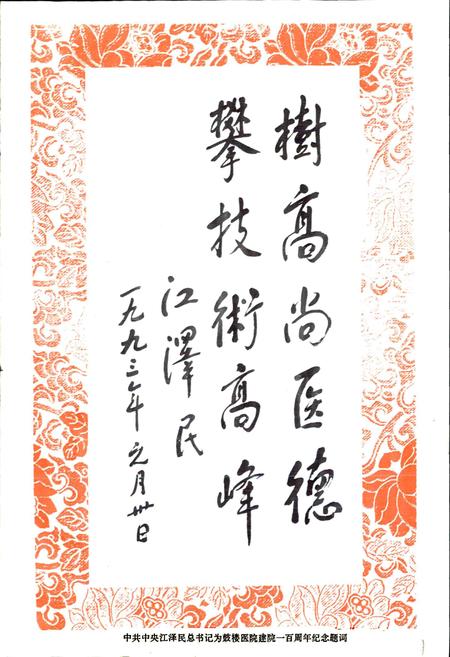 樹高尚医德
攀技術高峰
江澤民
一九九三年元月卅日
中共中央江泽民总书记为鼓楼医院建院一百周年纪念题词